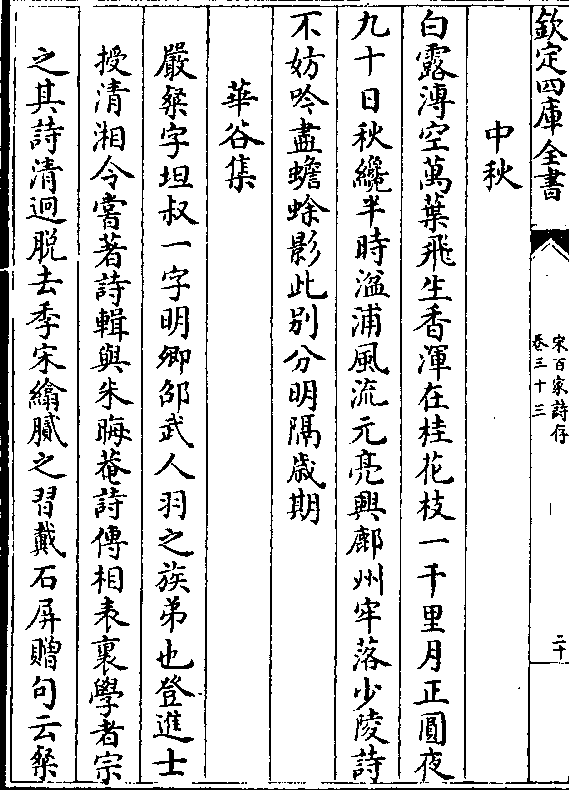 欽定四庫全書
宋百家詩存
卷三十三
二十
中秋
白露溥空萬葉飛生香渾在桂花枝一千里月正圓夜
九十日秋纔半時湓浦風流元亮興鄜州牢落少陵詩
不妨吟盡蟾蜍影此别分明隔歲期
華谷集
嚴粲字坦叔一字明卿邵武人羽之族弟也登進士
授清湘令嘗著詩輯與朱晦菴詩傳相表裏學者宗
之其詩清迥脱去季宋纖膩之習戴石屏贈句云粲